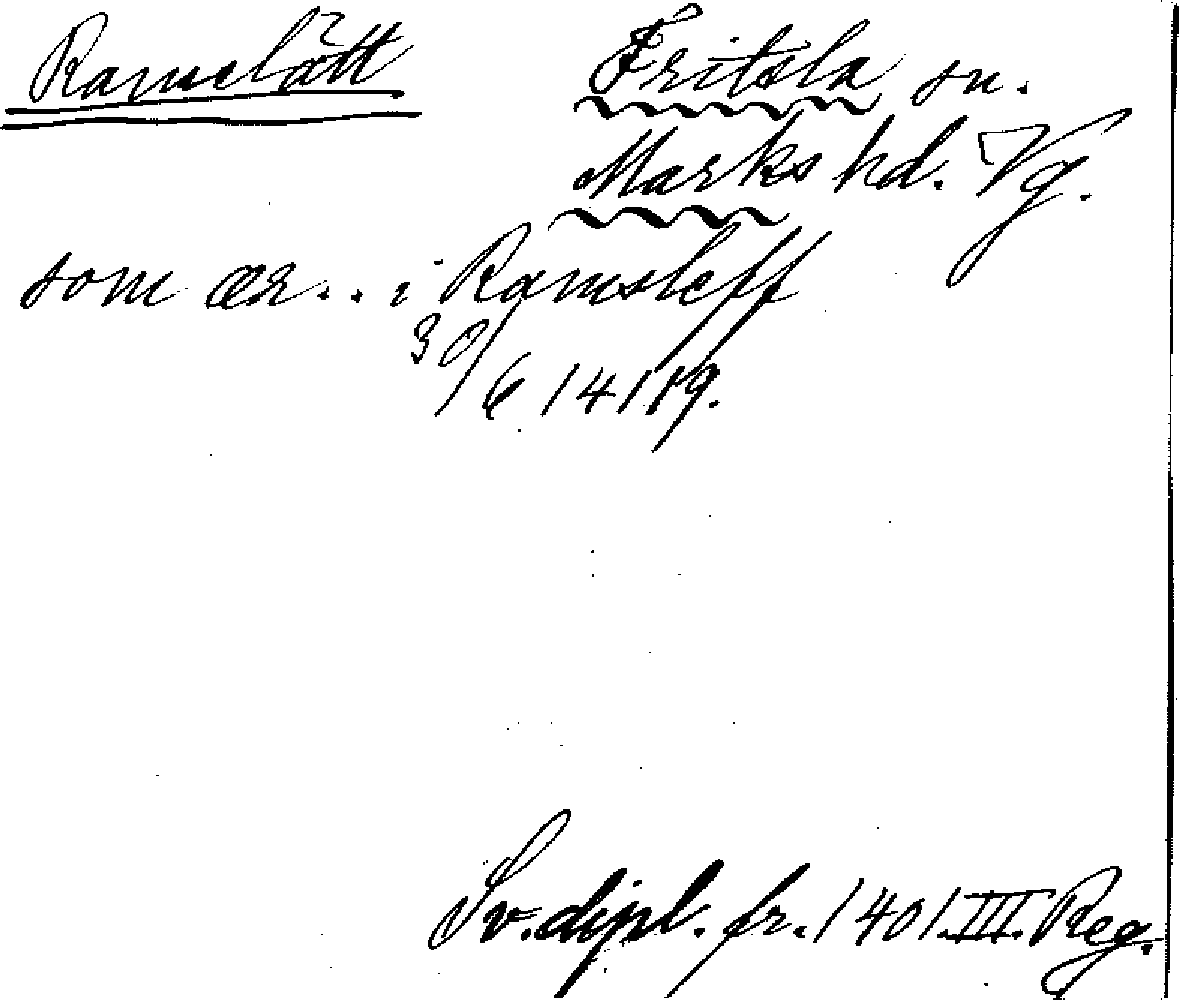 Ramslätt
Fritsla sn.
Marks hd. Vg.
som ær... i Ramsleff
30/6 1419.
Sv. dipl. fr. 1401. III. Reg.